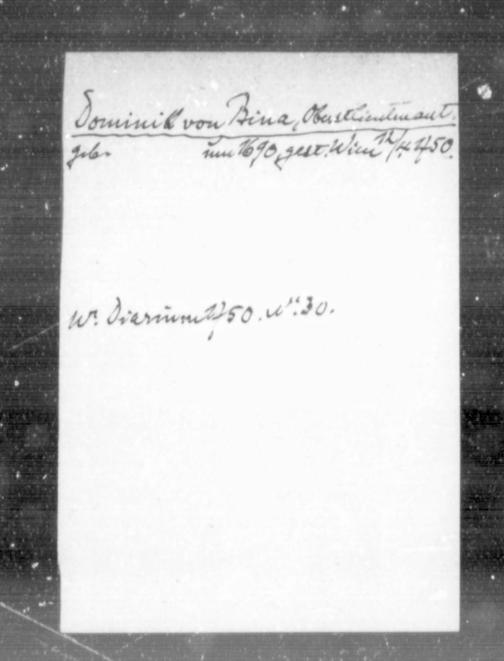 Dominik von Bina, Oberstlieutenant.
geb. um 1690, gest. Wien 12/4 1750.
Wr. Diarium 1750. Nr. 30.